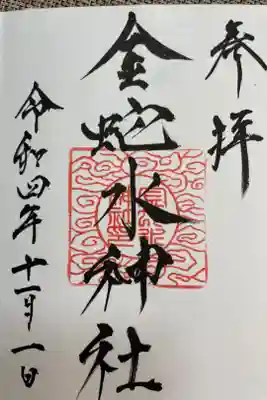 参拝
金蛇水神社
令和四年十一月一日